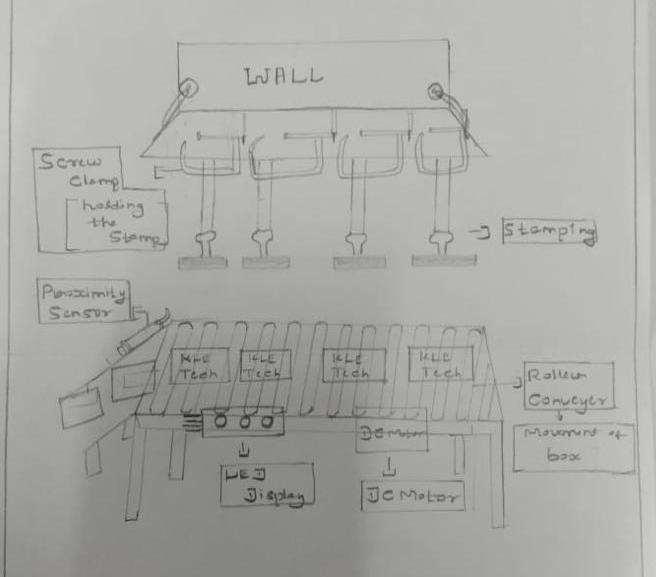 WALL
Screw
Clamp
holding
the
Stamp
Stamping
Proximity
Sensor
KLE
Tech
KLE
Tech
KLE
Tech
KLE
Tech
Roller
Conveyer
Movement of
box
DC Motor
LED
Display
DC Motor